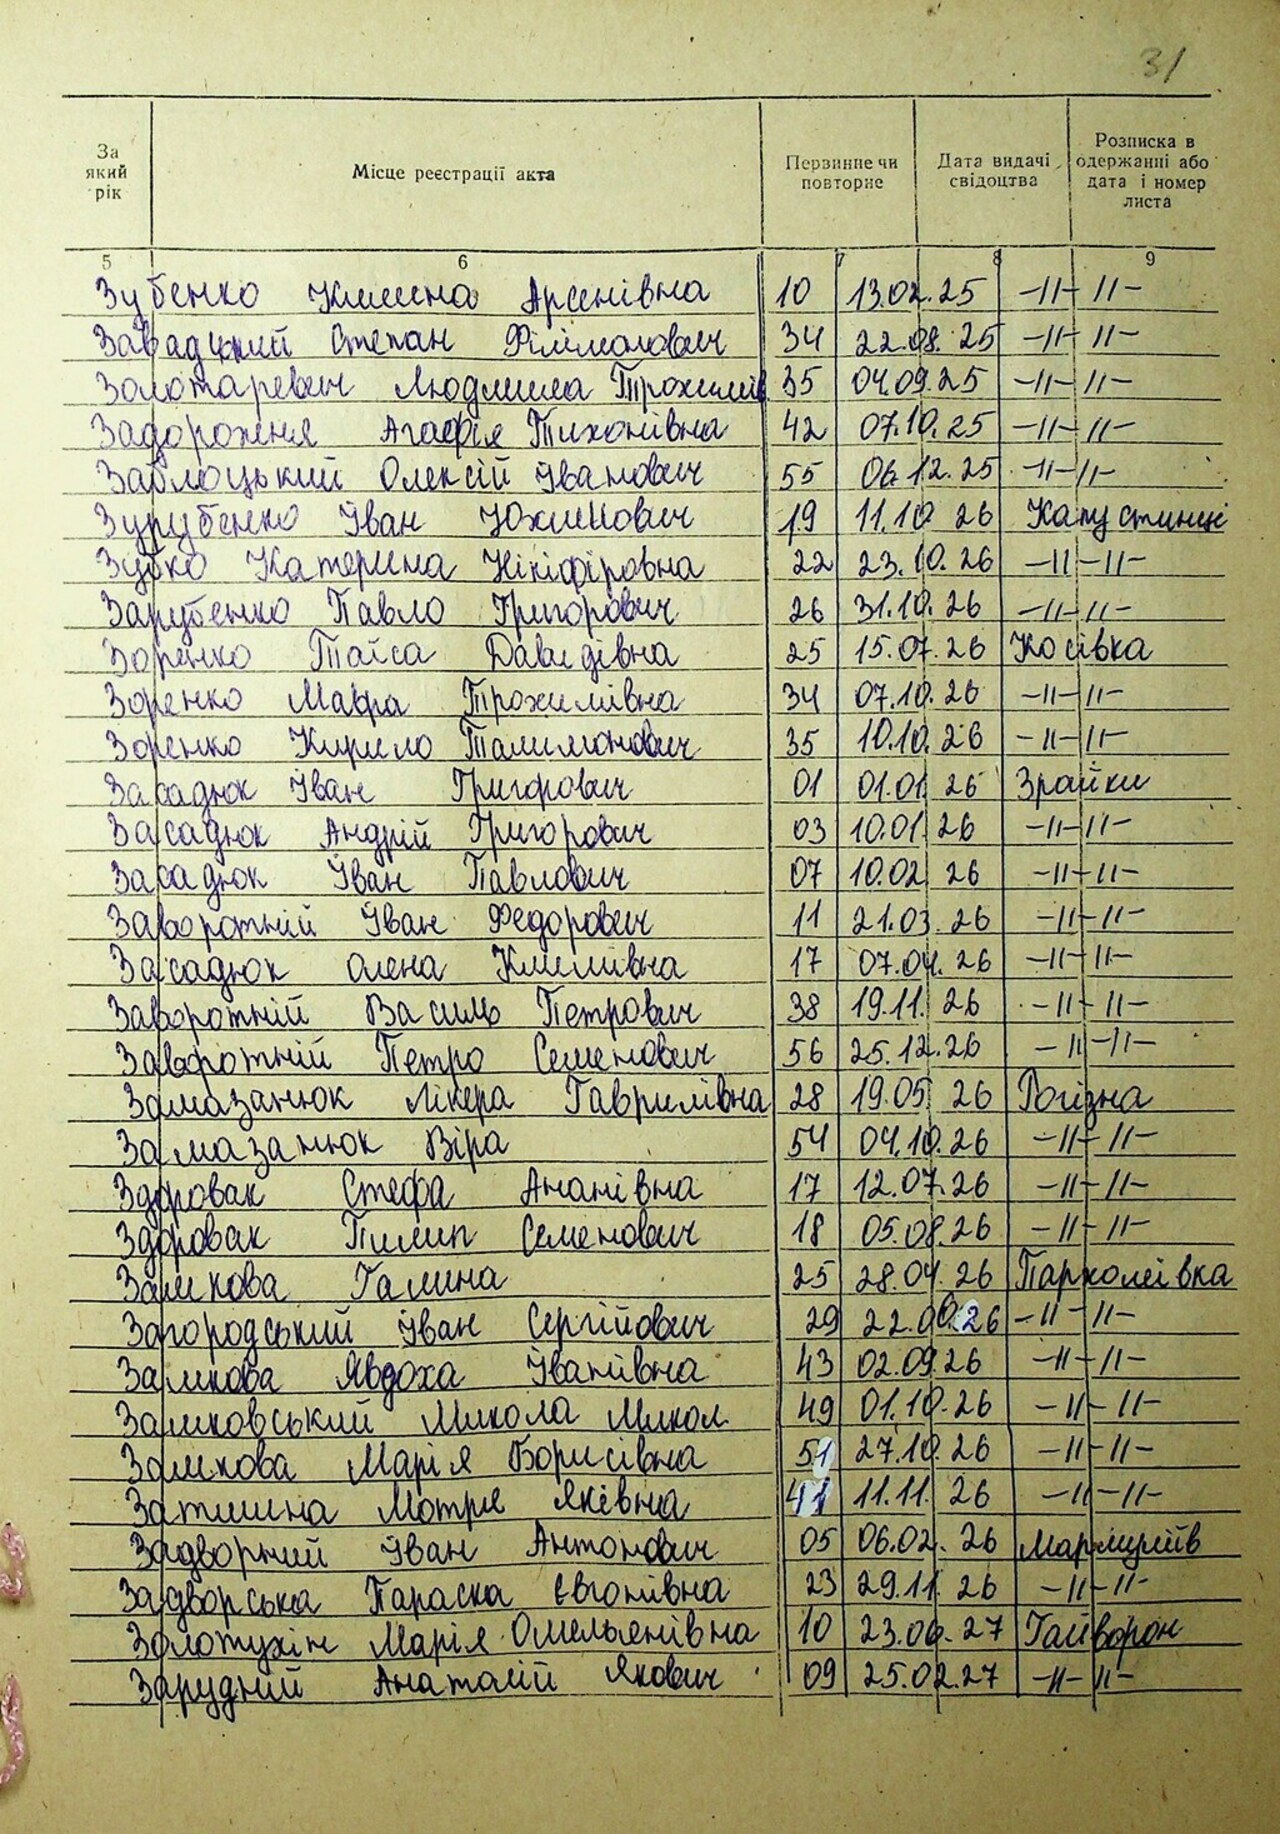 31
За який рік Місце реєстрації акта Первинне чи повторне Дата видачі свідоцтва Розписка в одержанні або дата і номер листа
5 6 7 8 9
Зубенко Арсенівна 10 13.02.25 -//- //-
Завадський Степан Філімонович 34 22.08.25 -//- //-
Золотаревич Людмила Трохимів 35 04.09.25 -//- //-
Задорожня Агафія Тихонівна 42 07.10.25 -//- //-
Заблоцький Олексій Іванович 55 06.12.25 -//-//-
Зурубенко Іван Юхимович 19 11.10 26 Капустинці
Зубко Катерина Нікіфіровна 22 23.10.26 -//-//-
Зарубенко Павло Григорович 26 31.10.26 -//-//-
Зоренко Таїса Давидівна 25 15.07.26 Косівка
Зоренко Мавра Трохимівна 34 07.10.26 -//-//-
Зоренко Кирило Талимонович 35 10.10.26 -//-//-
Засадюк Іван Григорович 01 01.01 26 Зрайки
Засадюк Андрій Григорович 03 10.01 26 -//-//-
Засадюк Іван Павлович 07 10.02 26 -//-//-
Заворотній Іван Федорович 11 21.03.26 -//-//-
Засадюк Олена Климівна 17 07.04.26 -//-//-
Заворотній Василь Петрович 38 19.11.26 -//-//-
Заворотній Петро Семенович 56 25.12.26 -//-//-
Замазанюк Лікера Гаврилівна 28 19.05 26 Рогізна
Замазанюк Віра 54 04.10.26 -//-//-
Здоровак Стефа Ананівна 17 12.07.26 -//-//-
Здоровак Пилип Семенович 18 05.08.26 -//-//-
Замкова Галина 25 28.04.26 Пархомівка
Загородський Іван Сергійович 29 -//-//-
Замкова Явдоха Іванівна 43 02.09.26 -//-//-
Замковський Микола Микол. 49 01.10.26 -//-//-
Замкова Марія Борисівна 51 27.10.26 -//-//-
Затишна Мотря Яківна 41 11.11.26 -//-//-
Задворний Іван Антонович 05 06.02.26
Задворська Параска Євгонівна 23 29.11.26 -//-//-
Золотухін Марія Омельянівна 10 23.06.27 Гайворон
Зарудній Анатолій Якович 09 25.02.27 -//-//-